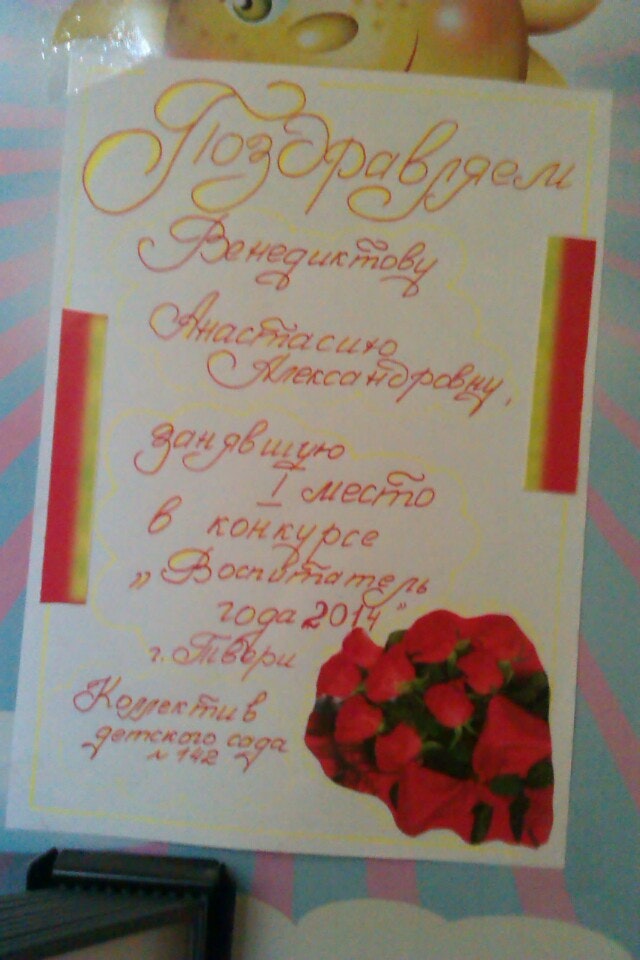 Поздравляем
Венедиктову
Анастасию
Александровну,
занявшую
I место
в конкурсе
„Воспитатель
года 2014"
г. Твери
Коллектив
детского сада
№ 142